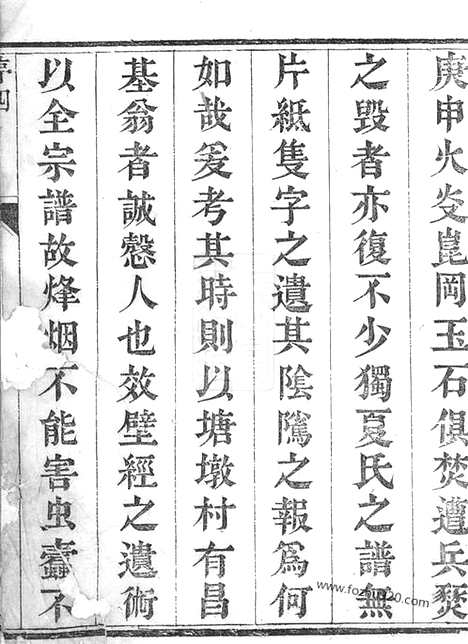 庚申火炎崑岡玉石俱焚遭兵燹
之毀者亦復不少獨夏氏之譜無
片紙隻字之遺其陰隲之報爲何
如哉爰考其時則以塘墩村有昌
基翁者誠慤人也效壁經之遺術
以全宗譜故烽烟不能害虫蠹不
序四
www.fozhu920.com